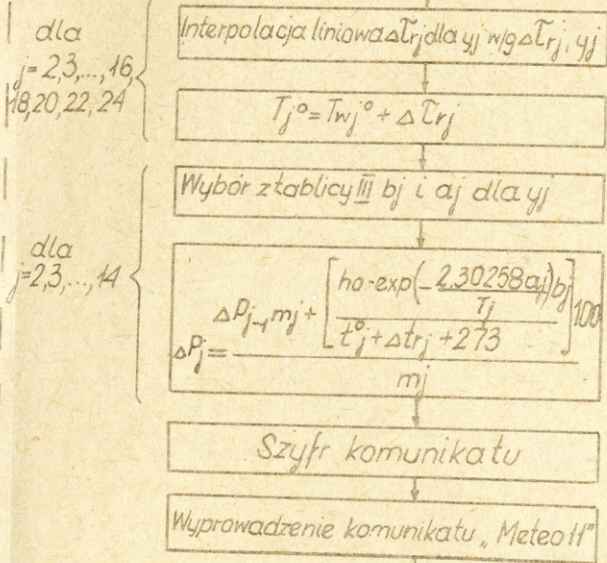 dla
j=2,3,...,16,
18,20,22,24
Interpolacja liniowa Δτrj dla yj w/g Δτrj, yj
Tj° = Twj° + Δτrj
Wybór z tablicy III bj i aj dla yj
dla
j=2,3,...,14
ΔPj = (ΔPj-1 mj + [ho-exp(-2,30258aj/Tj)bj / t°j+Δtrj+273]100) / mj
Szyfr komunikatu
Wyprowadzenie komunikatu „Meteo11"